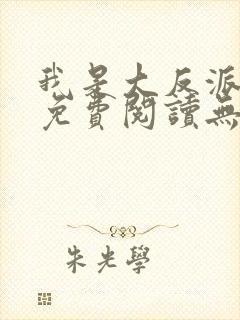 我是大反派
免費閱讀無
朱光學